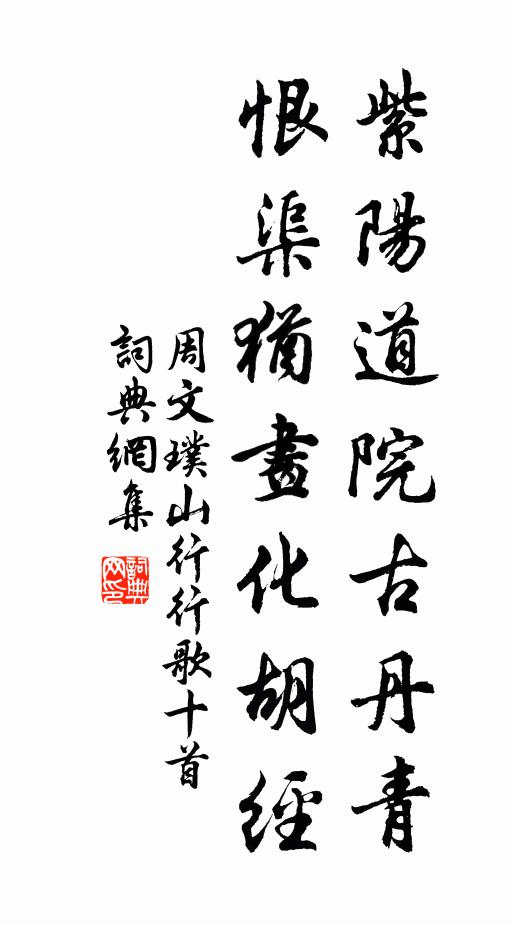 紫陽道院古丹青
恨渠猶畫化胡經
周文璞山行行歌十首
詞典網集
詞典
网印